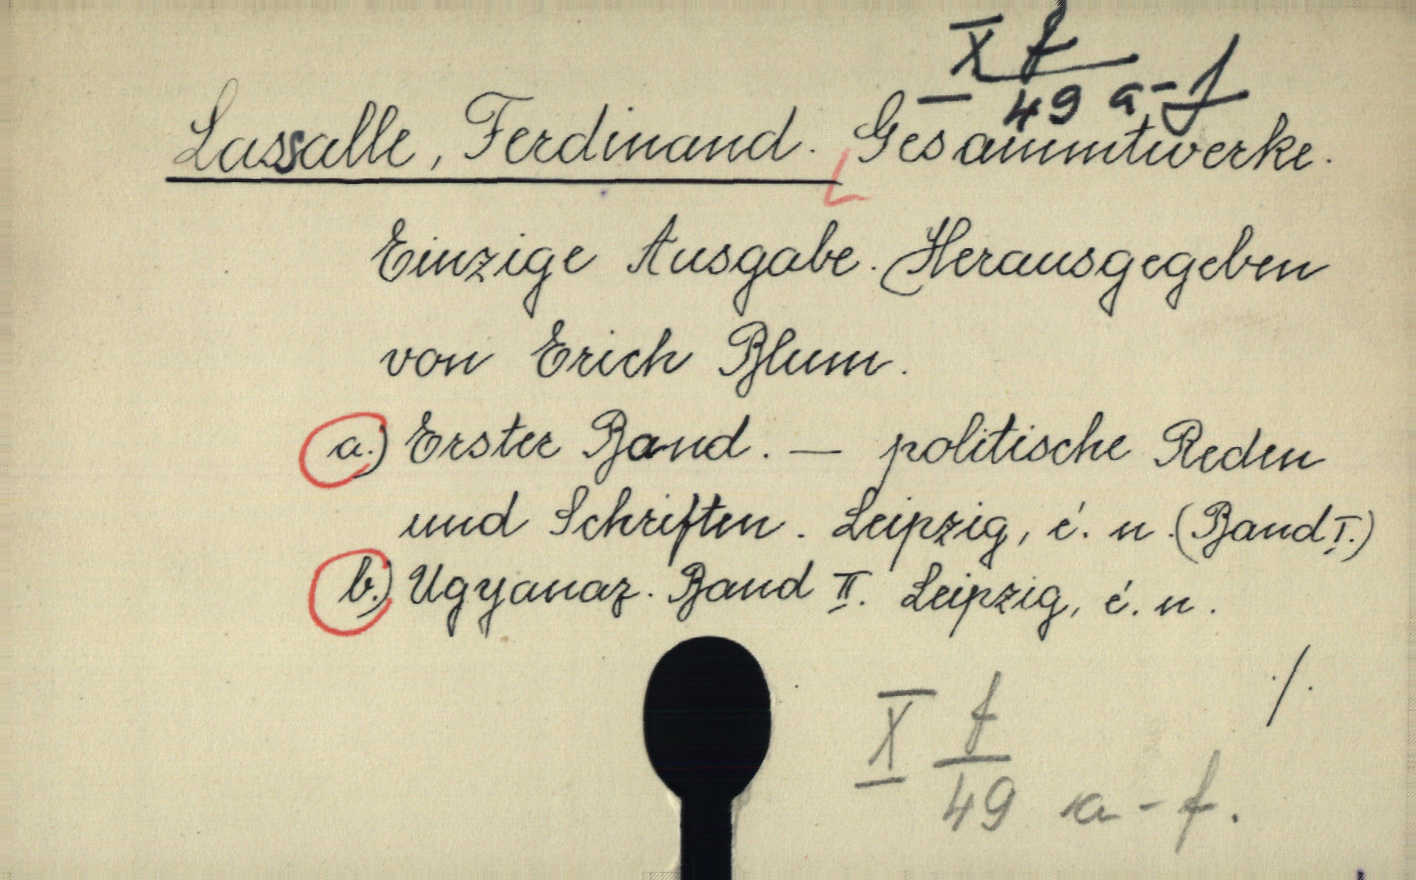 X f
49 a-f
Lassalle, Ferdinand. Gesammtwerke.
Einzige Ausgabe. Herausgegeben
von Erich Blum.
a.) Erster Band. — politische Reden
und Schriften. Leipzig, é. n. (Band I.)
b.) Ugyanaz. Band II. Leipzig, é. n.
./.
X f
49 a-f.